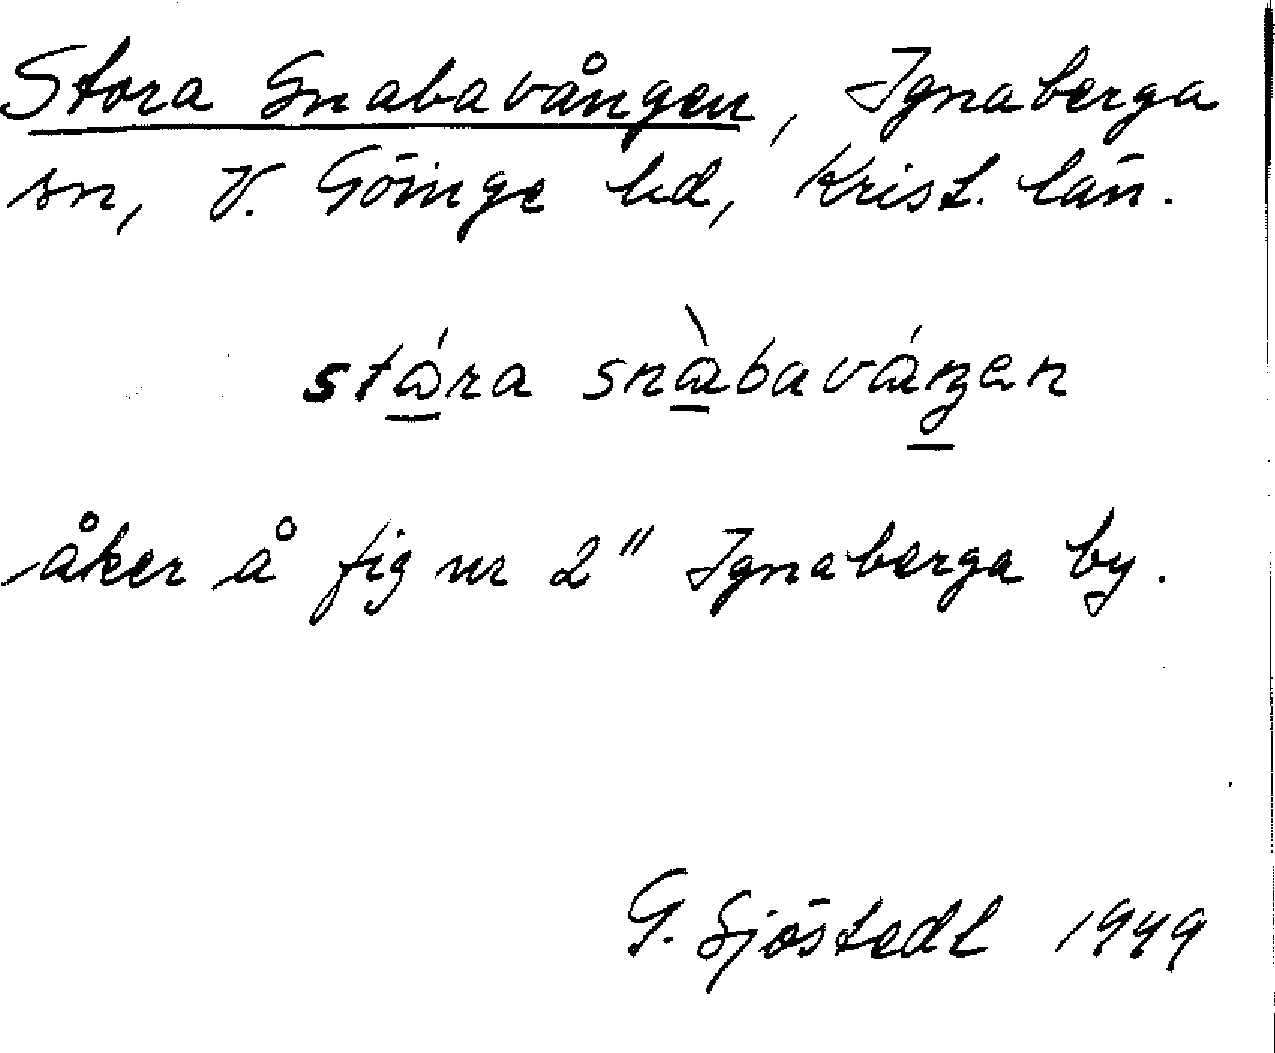 Stora Snabavången, Ignaberga
sn, V. Göinge hd, Krist. län.
stára snàbavángen
åker å fig nr 2" Ignaberga by.
G. Sjöstedt 1949